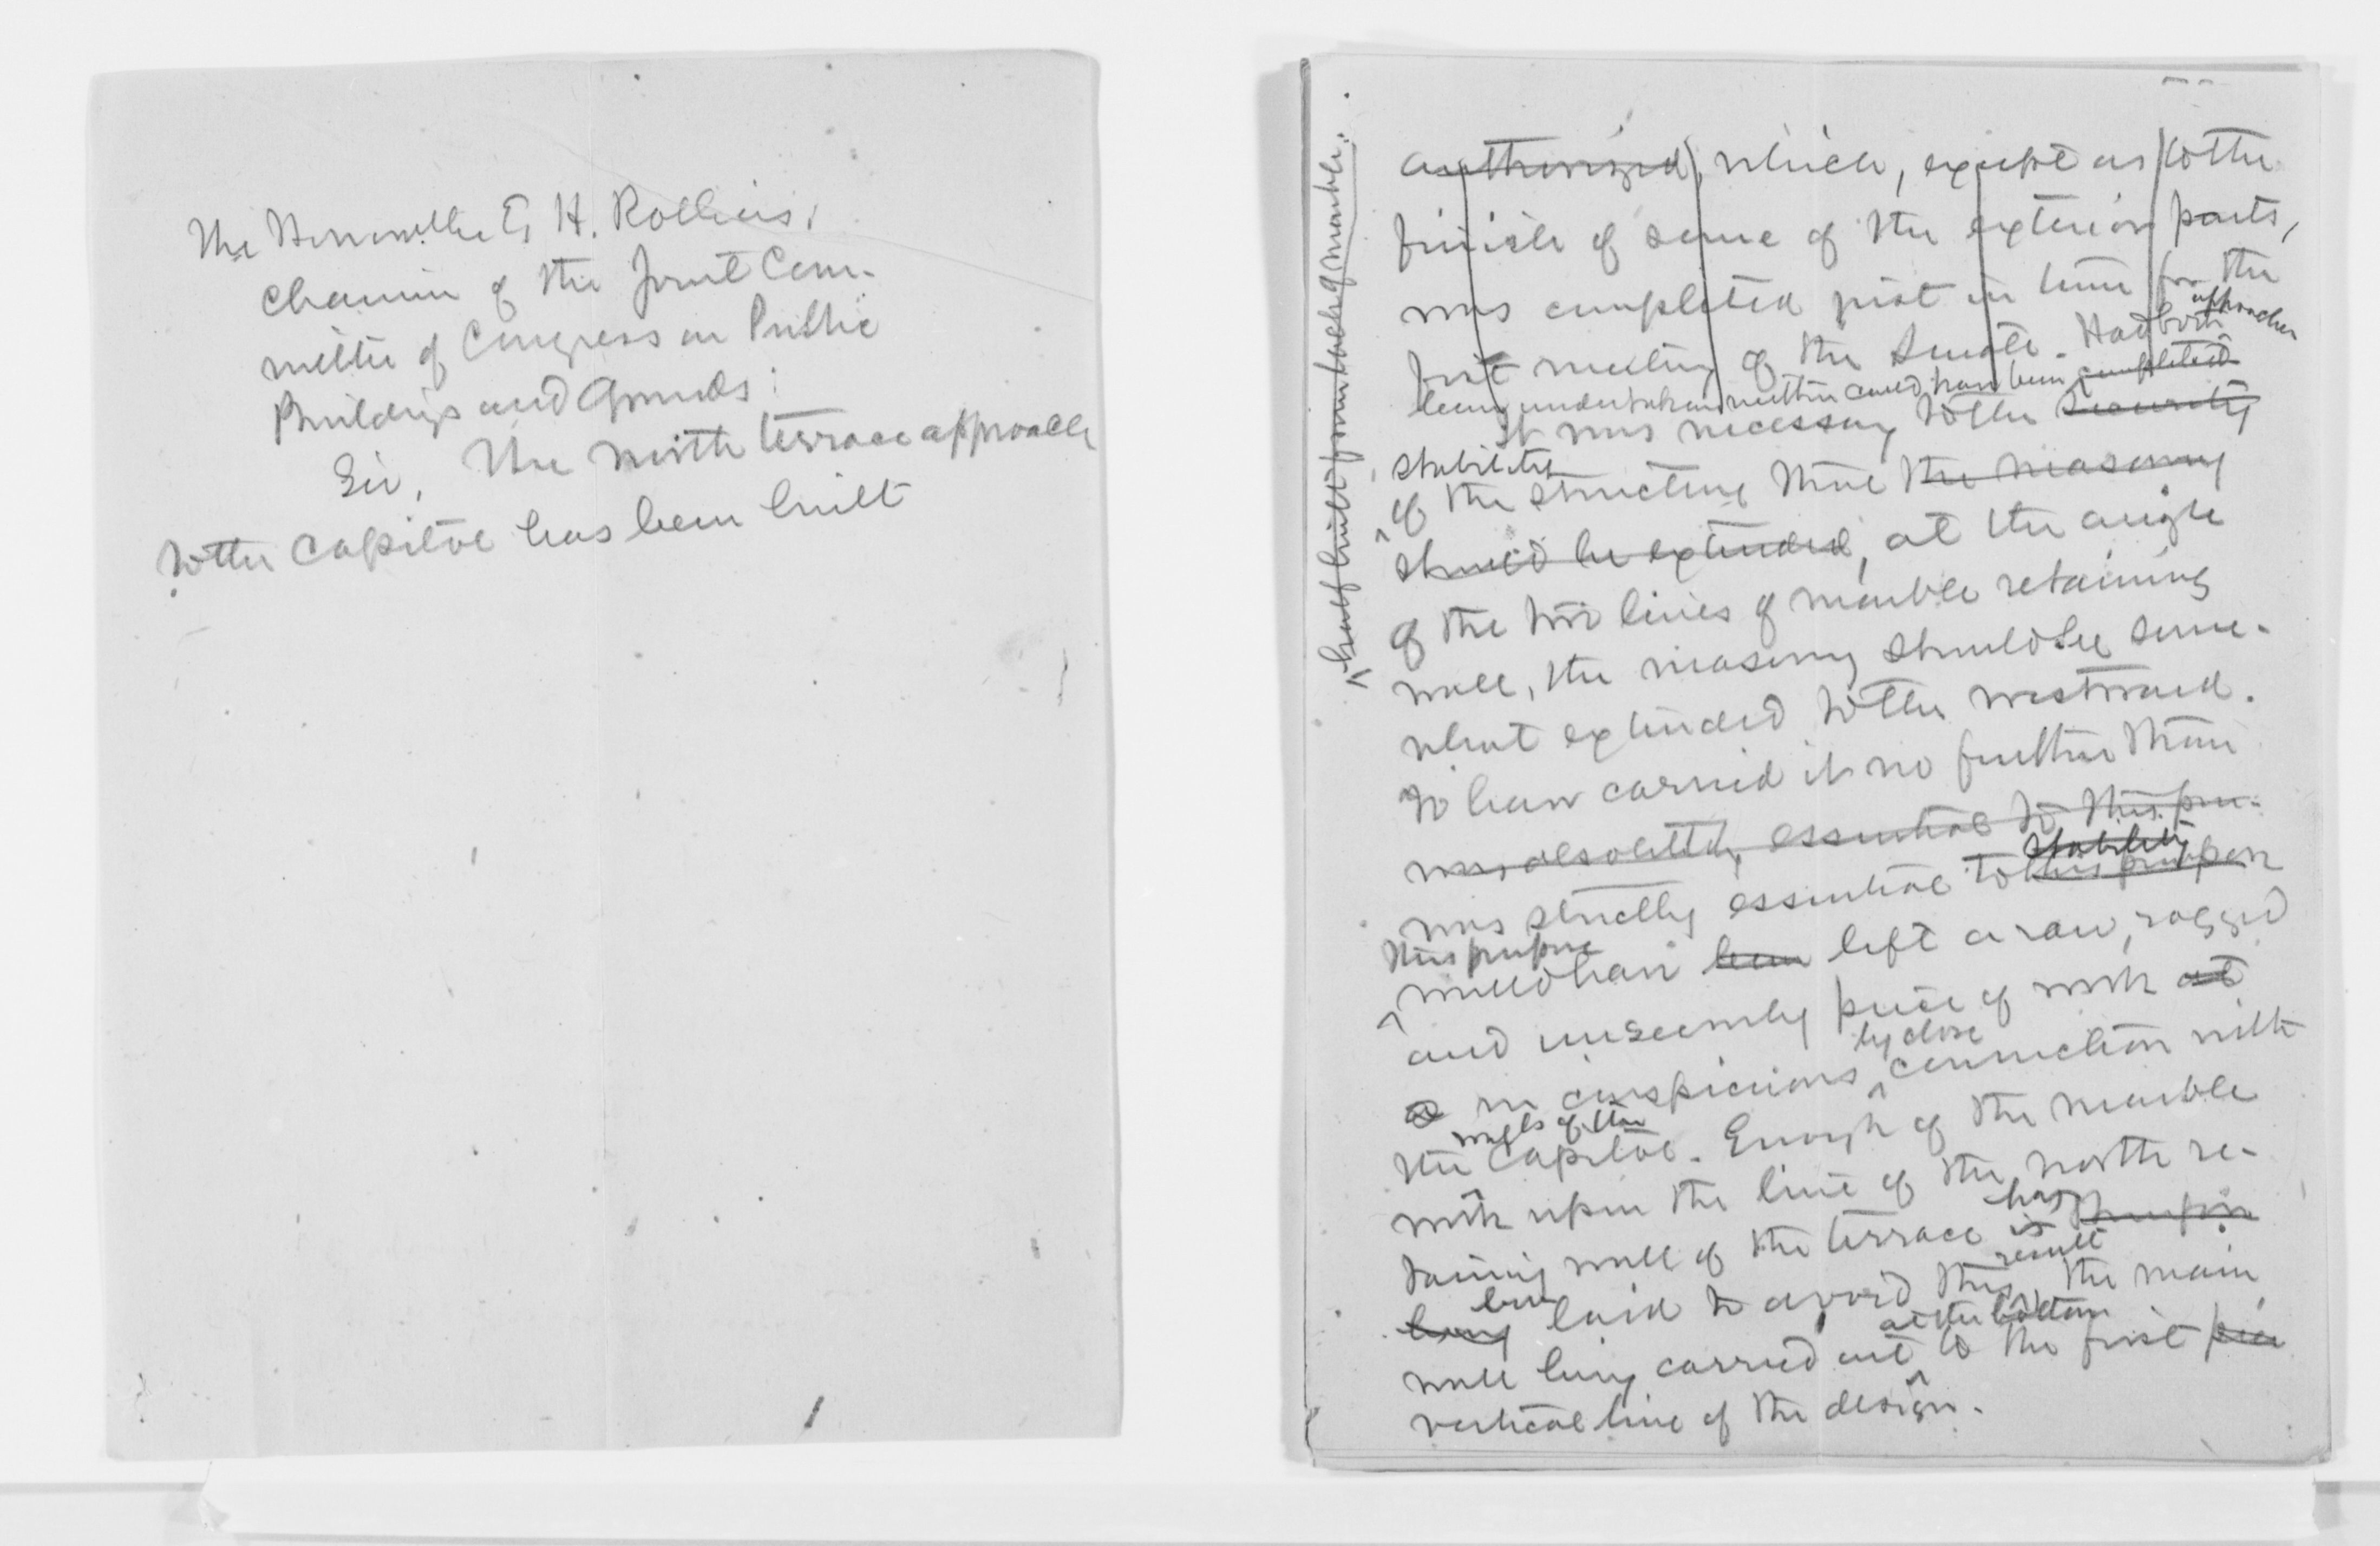 The Honorable E H. Rollins,
Chairman of the Joint Com-
mittee of Congress on Public
Buildings and Grounds:
Sir, The north terrace approach
to the Capitol has been built
half built from back of marble.
authorized, which, except as to the
finish of some of the exterior parts,
was completed just in time for the
approaches
first meeting of the Senate. Had both
been undertaken neither could have been completed
It was necessary to the security
stability
of the structure that the masonry
should be extended, at the angle
of the two lines of marble retaining
wall, the masonry should be some-
what extended to the westward.
To have carried it no further than
was absolutely essential to this pur-
stability
was strictly essential to this purpose
this purpose
would have been left a raw, ragged
and unseemly piece of work at
by close
a in conspicuous connection with
walls of the
the Capitol. Enough of the marble
work upon the line of the north re-
has
taining wall of the terrace is therefore
result
been
being laid to avoid this, the main
at the bottom
wall being carried out to the first pier
vertical line of the design.